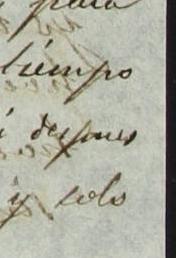 para
tiempo
despues
y solo